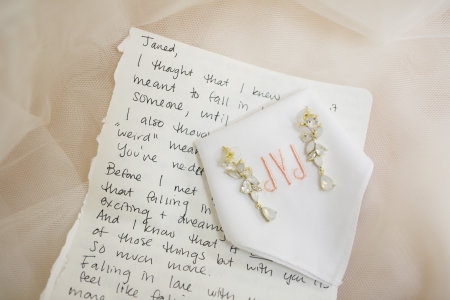 Jared,
I thought that I knew it
meant to fall in
someone, until
I also thoug
"weird" mea
You've
Before I met
that falling in
exciting + dream
And I know that it
of those things but with you it's
so much more.
Falling in love with
feel like fallin
more
JAP